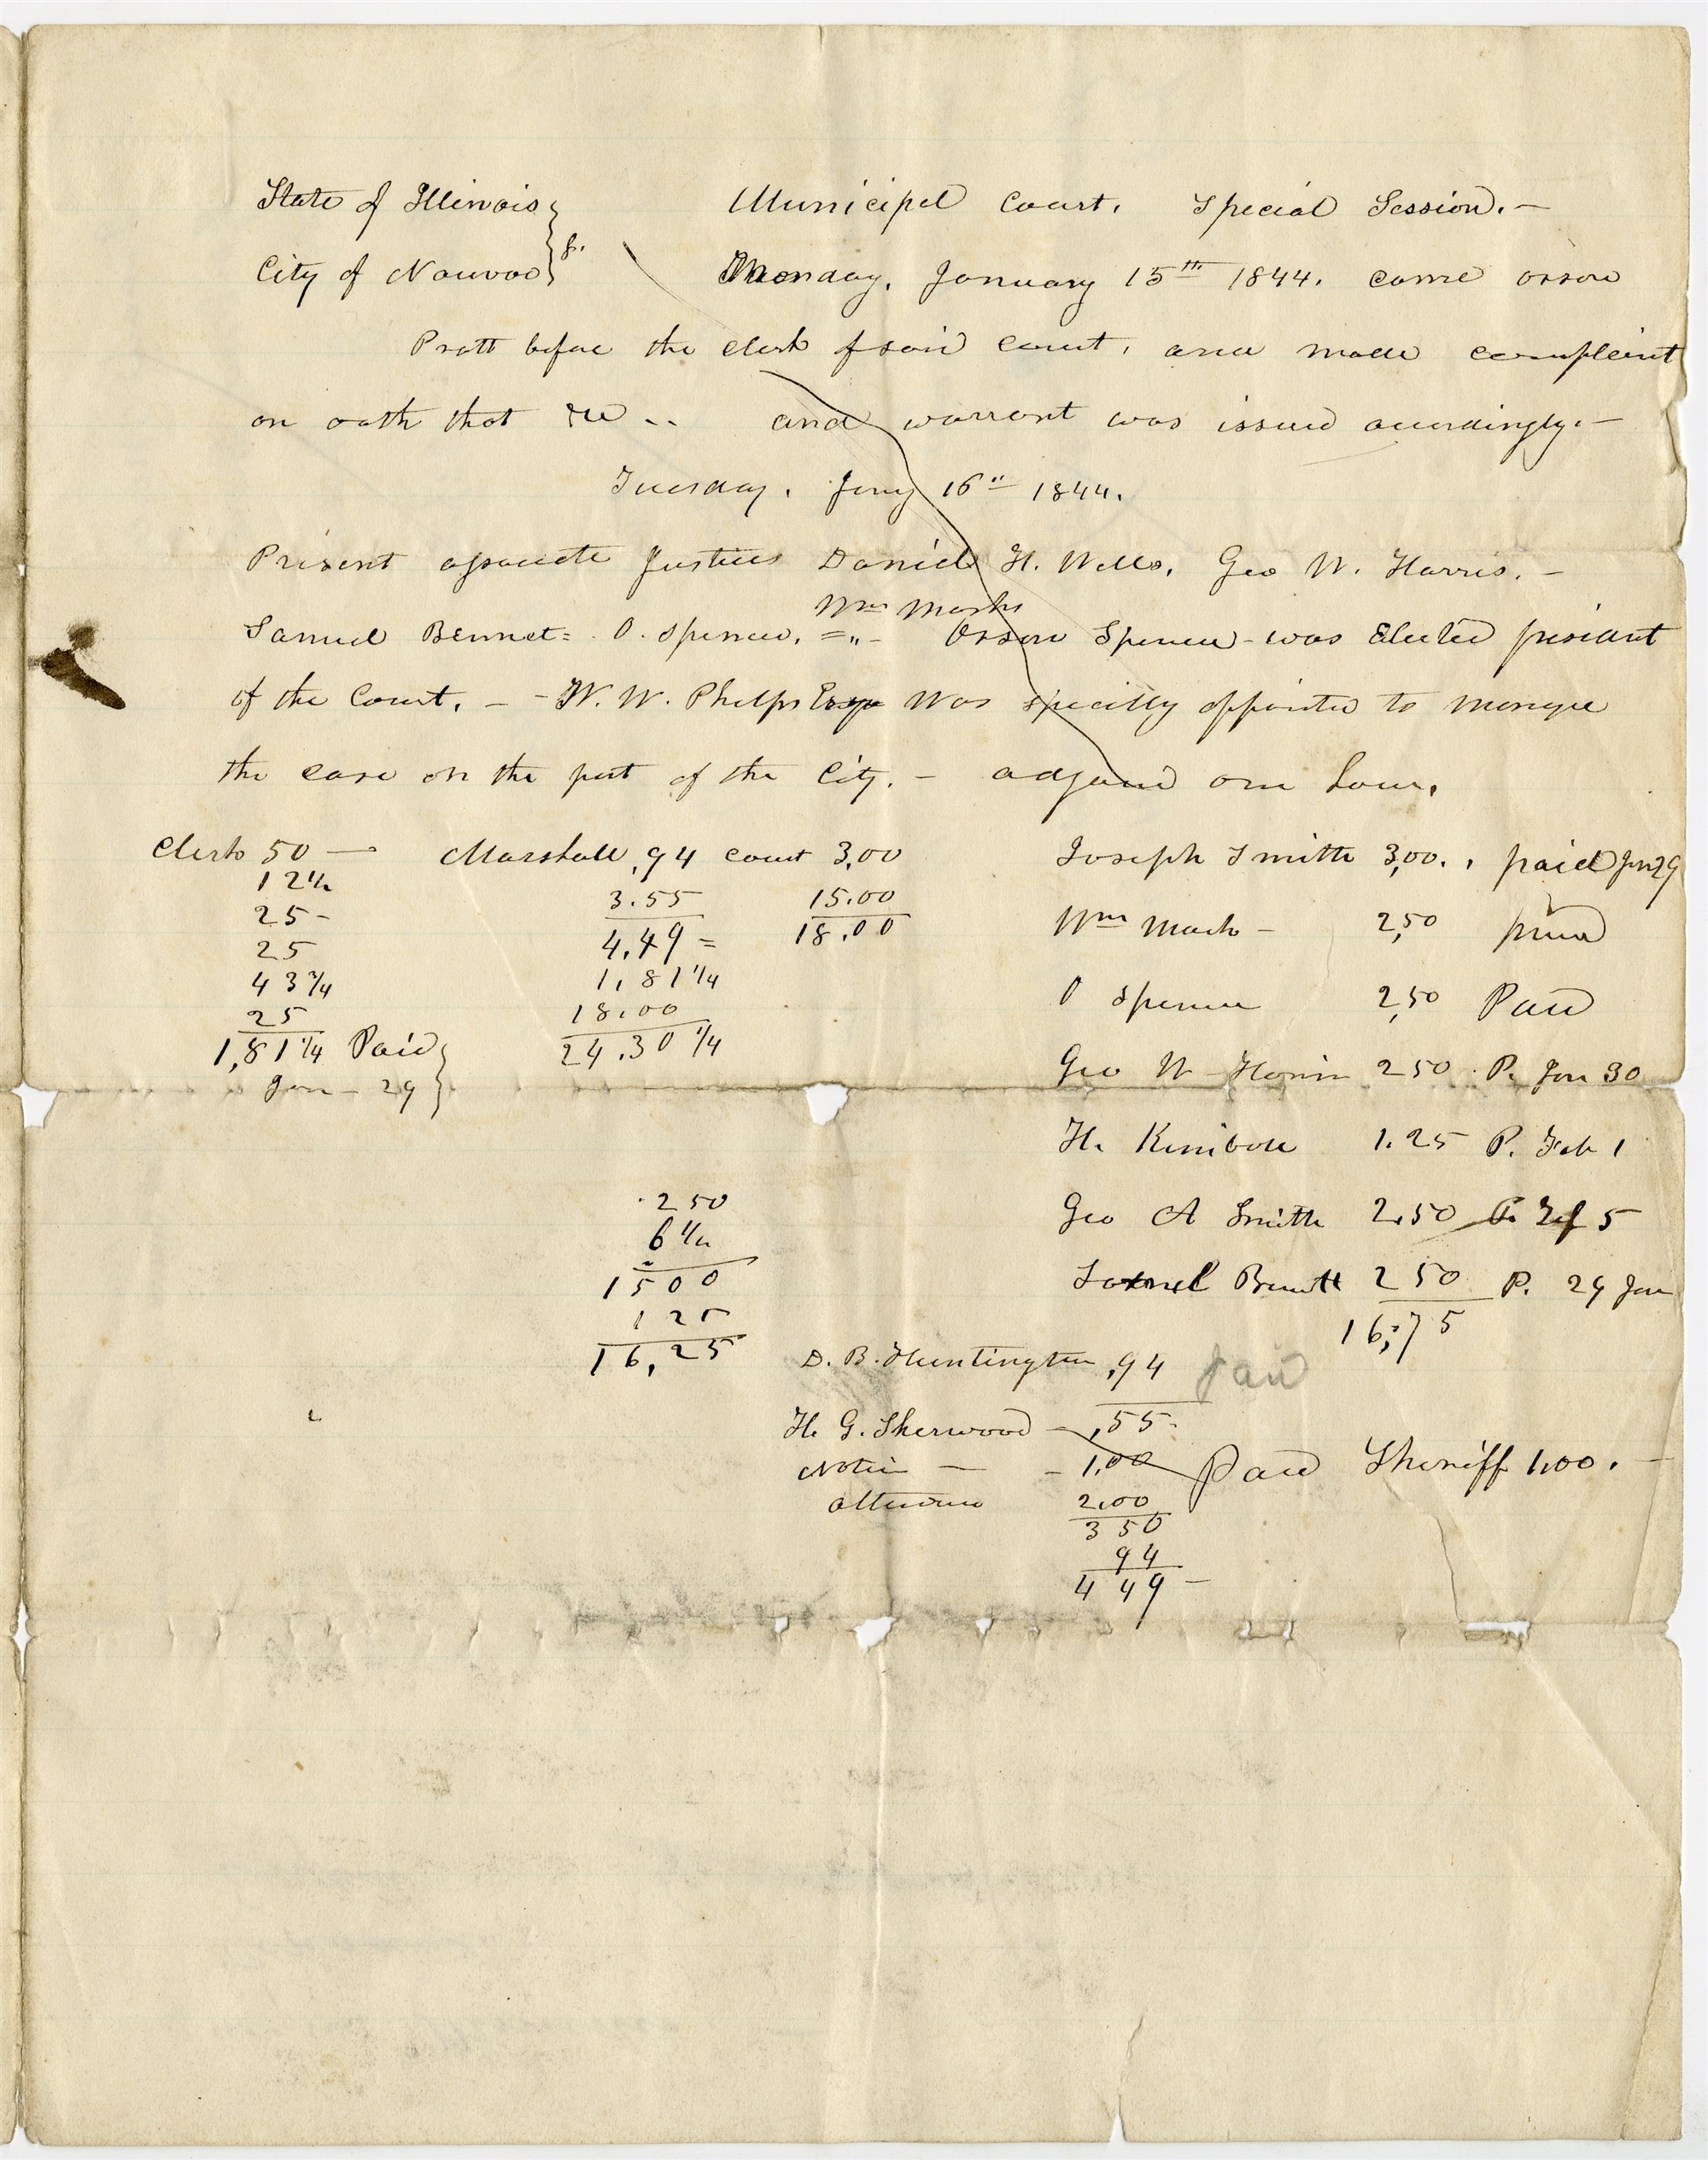 State of Illinois } Municipal Court. Special Session.—
City of Nauvoo } Monday. January 15th 1844. came Orson
Pratt before the clerk of said Court, and made complaint
on oath that &c .. and warrant was issued accordingly.—
Tuesday. Jany 16" 1844.
Present associate Justices Daniel H. Wells. Geo W. Harris.—
Wm Marks
Samuel Bennet= O. Spencer. =„- Orson Spencer - was Elected president
of the Court. — - W. W. Phelps Esqr Was specilly appointed to manage
the case on the part of the City. — adjound one hour.
Clerk 50 — Marshall ,94 Court 3,00
12½
25-
25
43¾
25
1,81¼ Paid }
Jan - 29 }
3.55
4,49 =
1,81¼
18.00
24.30¼
15.00
18.00
Joseph Smith 3,00. , paid Jan 29
Wm Mark - 2,50 paid
O Spencer 2,50 Paid
Geo W Harris 250 P. Jan 30
H. Kimball 1.25 P. Feb 1
Geo A Smith 2.50 P. Feb 5
Samuel Bennett 250 P. 29 Jan
16,75
250
6½
1500
125
16,25
D. B. Huntington ,94 paid
H. G. Sherwood - ,55-
Notice — - 1,00 Paid Sheriff 1,00. —
2.00
350
94
449 -